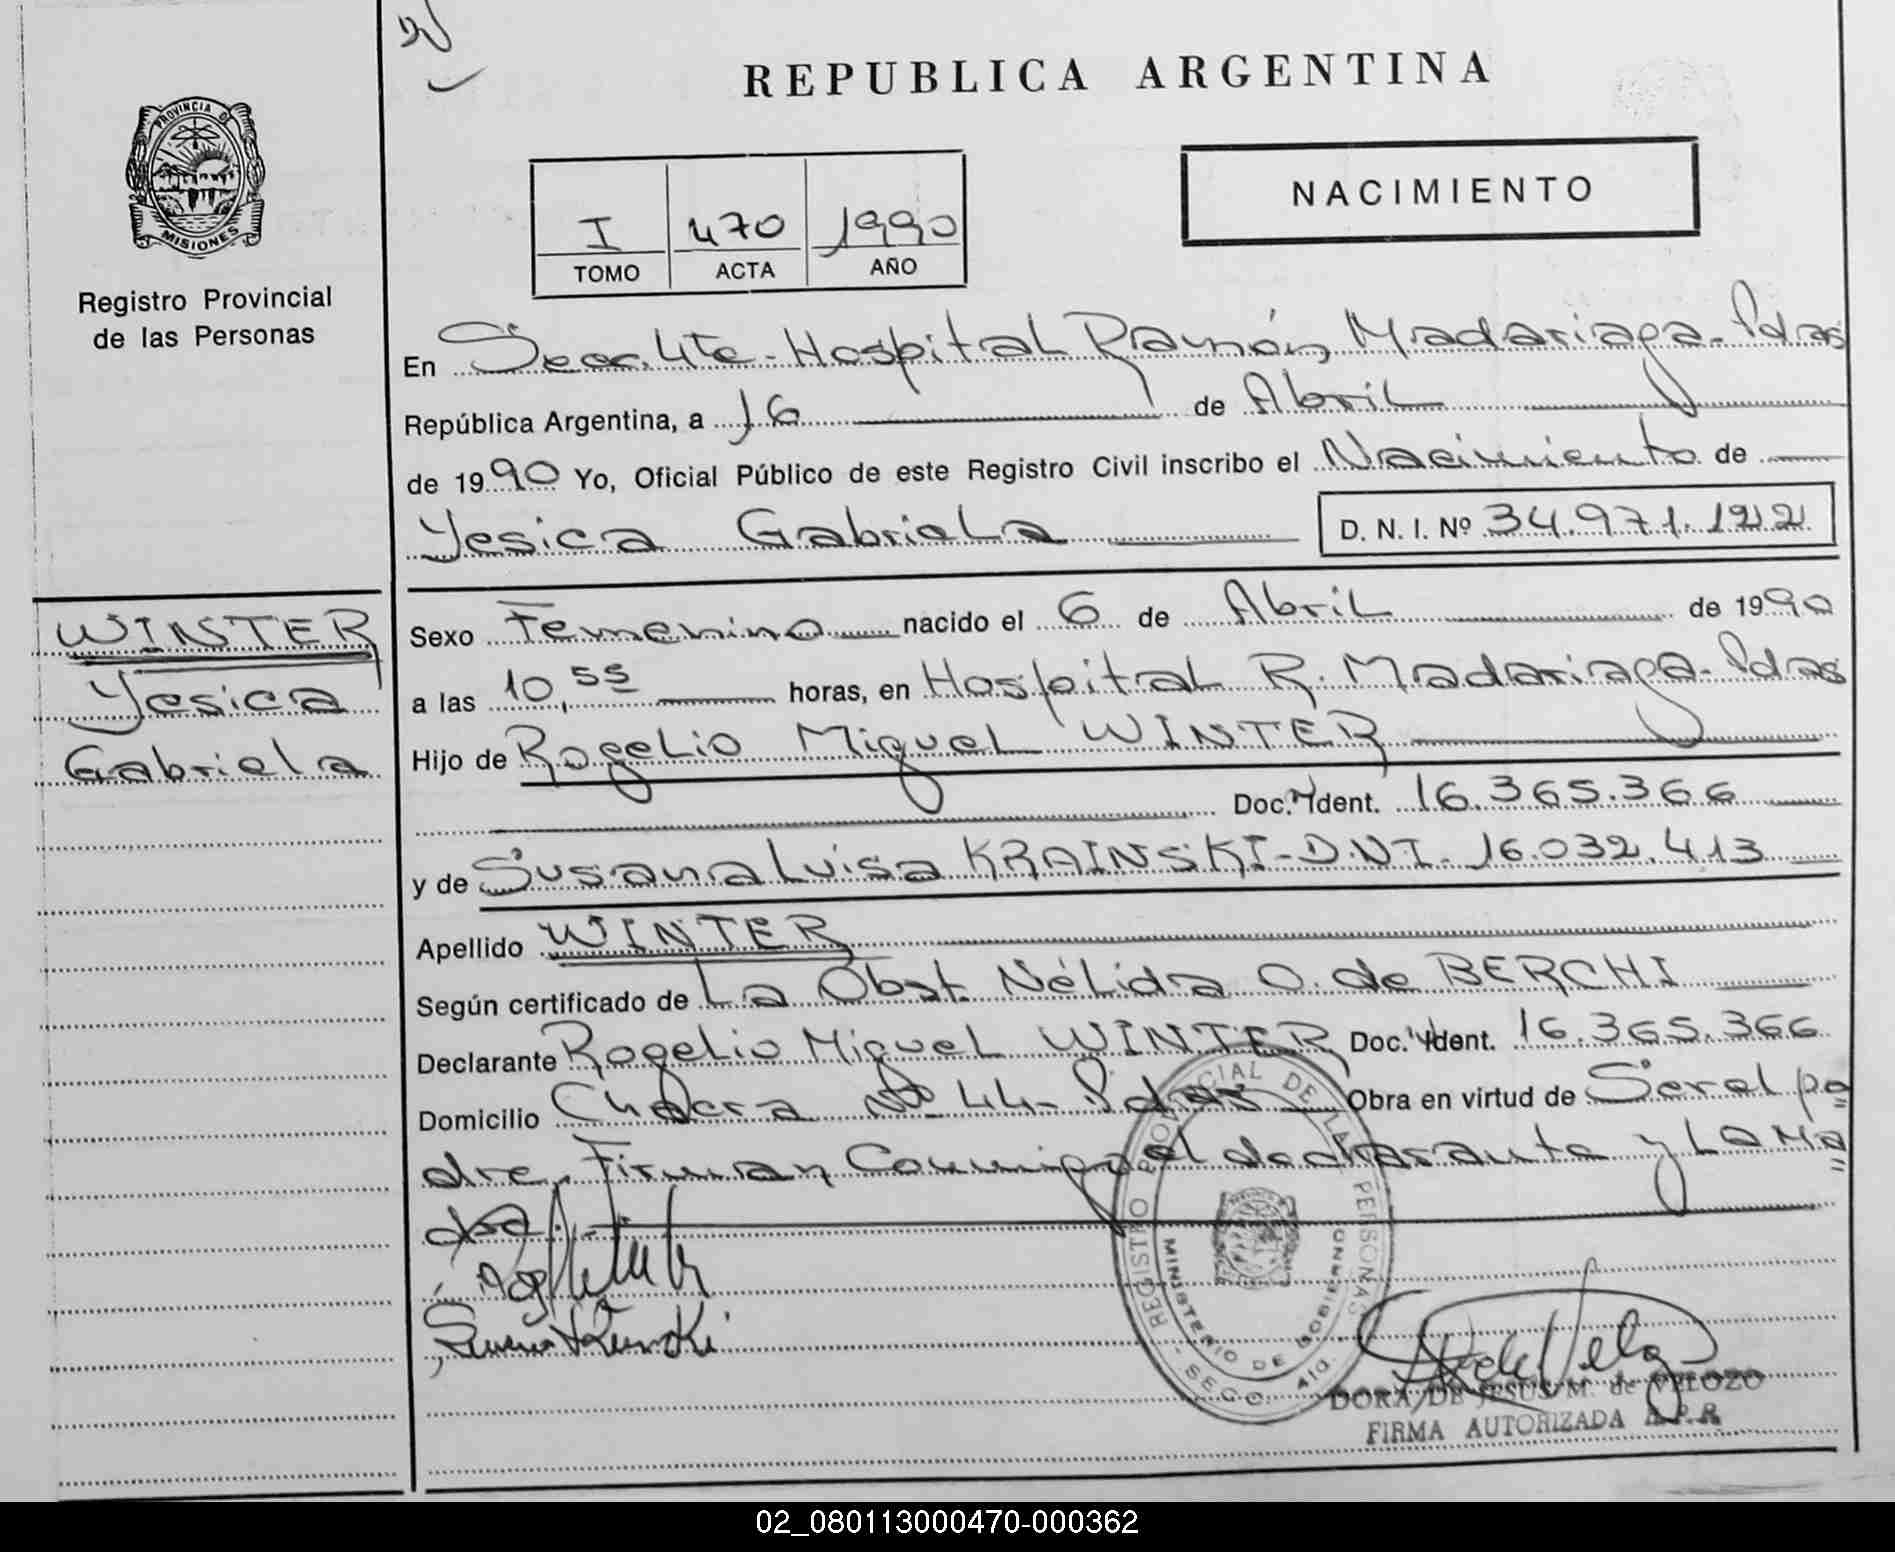 REPUBLICA ARGENTINA
PROVINCIA DE
MISIONES
Registro Provincial
de las Personas
I 470 1990
TOMO ACTA AÑO
NACIMIENTO
En Secc. 4te. Hospital Ramón Madariaga - Pdas
República Argentina, a 16 de Abril
de 1990 Yo, Oficial Público de este Registro Civil inscribo el Nacimiento de
Yesica Gabriela D. N. I. Nº 34.971.122
WINTER
Yesica
Gabriela
Sexo Femenino nacido el 6 de Abril de 1990
a las 10,55 horas, en Hospital R. Madariaga - Pdas
Hijo de Rogelio Miguel WINTER
Doc. Ident. 16.365.366
y de Susana Luisa KRAINSKI - D.N.I. 16.032.413
Apellido WINTER
Según certificado de La Obst. Nélida O. de BERCHI
Declarante Rogelio Miguel WINTER Doc. Ident. 16.365.366
Domicilio Chacra Nº 44 - Pdas Obra en virtud de Ser el pa
dre, Firman Conmigo el declarante y La Ma
dre
REGISTRO PROVINCIAL DE LAS PERSONAS
MINISTERIO DE GOBIERNO
DORA DE JESUS M. de VELOZO
FIRMA AUTORIZADA R.P.P.
02_080113000470-000362